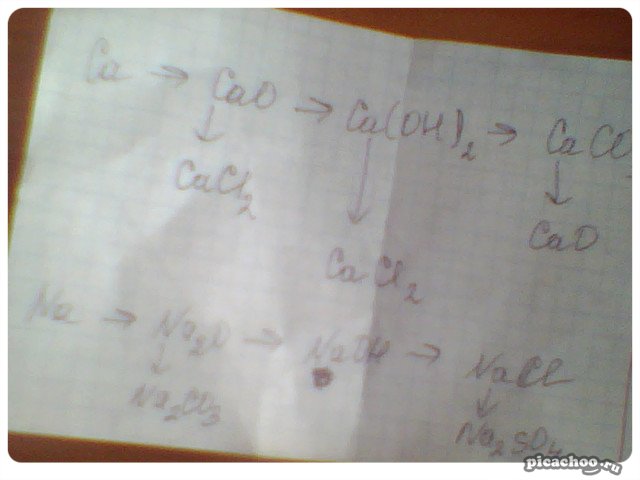 Ca → CaO → Ca(OH)₂ → CaCl
↓ ↓ ↓
CaCl₂ CaCl₂ CaO
Na → Na₂O → NaOH → NaCl
↓ ↓
Na₂Cl₃ Na₂SO₄
picachoo.ru